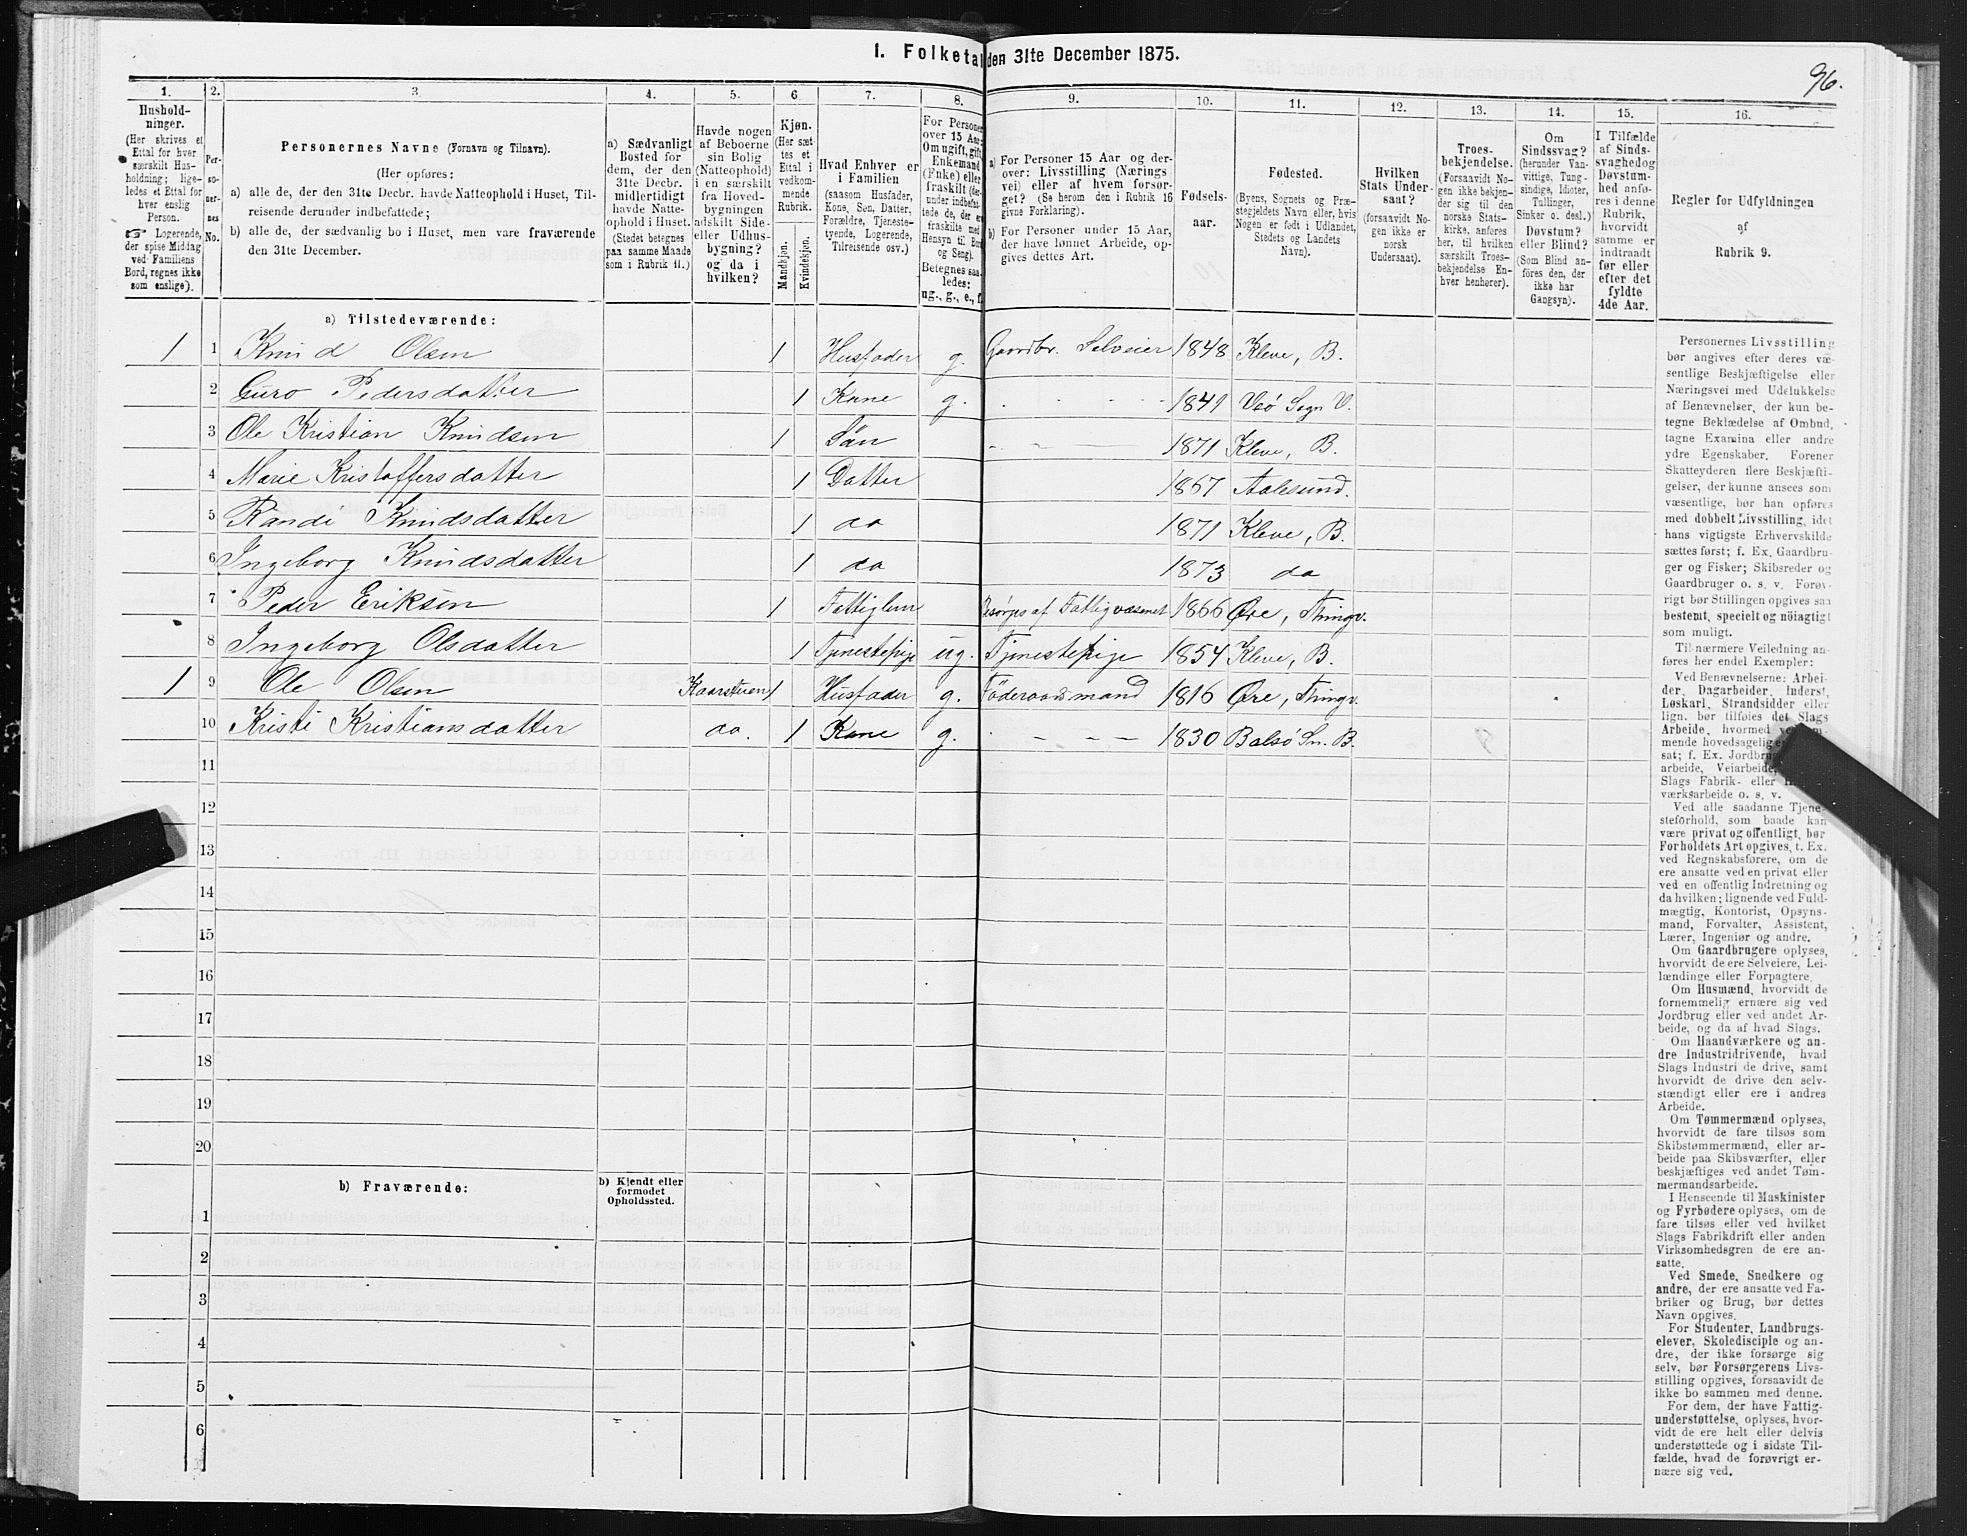 1. Folketal den 31te December 1875.
96.
1. 2. 3. 4. 5. 6 7. 8. 9. 10. 11. 12. 13. 14. 15. 16.
Hushold-
ninger.
(Her skrives et
Ettal for hver
særskilt Hus-
holdning; lige-
ledes et Ettal for
hver enslig
Person.
☞ Logerende,
der spise Middag
ved Familiens
Bord, regnes ikke
som enslige).
Per-
so-
ner-
nes
No.
Personernes Navne (Fornavn og Tilnavn).
(Her opføres:
a) alle de, der den 31te Decbr. havde Natteophold i Huset, Til-
reisende derunder indbefattede;
b) alle de, der sædvanlig bo i Huset, men vare fraværende
den 31te December.
a) Sædvanligt
Bosted for
dem, der den
31te Decbr.
midlertidigt
havde Natte-
ophold i Huset.
(Stedet betegnes
paa samme Maade
som i Rubrik 11.)
Havde nogen
af Beboerne
sin Bolig
(Natteophold)
i en særskilt
fra Hoved-
bygningen
adskilt Side-
eller Udhus-
bygning?
og da i
hvilken?
Kjøn.
(Her sæt-
tes et
Ettal i
vedkom-
mende
Rubrik.
Mandkjøn.
Kvindekjøn.
Hvad Enhver er
i Familien
(saasom Husfader,
Kone, Søn, Datter,
Forældre, Tjeneste-
tyende, Logerende,
Tilreisende osv.)
For Personer
over 15 Aar:
Om ugift, gift,
Enkemand
(Enke) eller
fraskilt (der-
under indbefat-
tede de, der er
fraskilte med
Hensyn til Bord
og Seng).
Betegnes saa-
ledes:
ug., g., e., f.
a) For Personer 15 Aar og der-
over: Livsstilling (Nærings-
vei) eller af hvem forsør-
get? (Se herom den i Rubrik 16
givne Forklaring).
b) For Personer under 15 Aar,
der have lønnet Arbeide, op-
gives dettes Art.
Fødsels-
aar.
Fødested.
(Byens, Sognets og Præ-
stegjeldets Navn eller, hvis
Nogen er født i Udlandet,
Stedets og Landets
Navn).
Hvilken
Stats Under-
saat?
(forsaavidt No-
gen ikke er
norsk
Undersaat).
Troes-
bekjendelse.
(Forsaavidt No-
gen ikke bekjen-
der sig til den
norske Stats-
kirke, anføres
her, til hvilken
særskilt Troes-
bekjendelse En-
hver henhører).
Om
Sindssvag?
(herunder Van-
vittige, Tung-
sindige, Idioter,
Tullinger,
Sinker o. desl.)
Døvstum?
eller Blind?
(Som Blind an-
føres den, der
ikke har
Gangsyn).
I Tilfælde
af Sinds-
svaghed og
Døvstum-
hed anfø-
res i denne
Rubrik,
hvorvidt
samme er
indtraadt
før eller
efter det
fyldte
4de Aar.
Regler for Udfyldningen
af
Rubrik 9.
a) Tilstedeværende:
1 1 Knud Olsen 1 Husfader g. Gaardbr. Selveier 1848 Kleve, B.
2 Guro Pedersdatter 1 Kone g. 1841 Veö Sogn V.
3 Ole Kristian Knudsen 1 Sön 1871 Kleve, B.
4 Marie Kristoffersdatter 1 Datter 1867 Aalesund.
5 Randi Knudsdatter 1 do 1871 Kleve, B.
6 Ingeborg Knudsdatter 1 do 1873 do
7 Peder Eriksen 1 Fattiglem Besörges af Fattigvæsenet 1866 Øre, Thingv.
8 Ingeborg Olsdatter 1 Tjenestepige ug. Tjenestepige 1854 Kleve, B.
1 9 Ole Olsen Kaarstuen 1 Husfader g. Föderaadsmand 1816 Øre, Thingv.
10 Kristi Kristiansdatter do. 1 Kone g. 1830 Bolsö Sn. B.
11
12
13
14
15
16
17
18
19
20
b) Fraværende:
b) Kjendt eller
formodet
Opholdssted.
1
2
3
4
5
6
Personernes Livsstilling
bør angives efter deres væ-
sentlige Beskjæftigelse eller
Næringsvei med Udelukkelse
af Benævnelser, der kun be-
tegne Beklædelse af Ombud,
tagne Examina eller andre
ydre Egenskaber. Forener
Skatteyderen flere Beskjæfti-
gelser, der kunne ansees som
væsentlige, bør han opføres
med dobbelt Livsstilling, idet
hans vigtigste Erhvervskilde
sættes først; f. Ex. Gaardbru-
ger og Fisker; Skibsreder og
Gaardbruger o. s. v. Forøv-
rigt bør Stillingen opgives saa
bestemt, specielt og nöiagtigt
som muligt.
Til nærmere Veiledning an-
føres her endel Exempler:
Ved Benævnelserne: Arbei-
der, Dagarbeider, Inderst,
Løskarl, Strandsidder eller
lign. bør tilføies det Slags
Arbeide, hvormed
mende hovedsagelig
sat; f. Ex. Jordbru
arbeide, Veiarbeide,
Slags Fabrik- eller
værksarbeide o. s. v.
Ved alle saadanne Tjene-
steforhold, som baade kan
være privat og offentligt, bør
Forholdets Art opgives, t. Ex.
ved Regnskabsførere, om de
ere ansatte ved en privat eller
ved en offentlig Indretning og
da hvilken; lignende ved Fuld-
mægtig, Kontorist, Opsyns-
mand, Forvalter, Assistent,
Lærer, Ingeniør og andre.
Om Gaardbrugere oplyses,
hvorvidt de ere Selveiere, Lei-
lændinge eller Forpagtere.
Om Husmænd, hvorvidt de
fornemmelig ernære sig ved
Jordbrug eller ved andet Ar-
beide, og da af hvad Slags.
Om Haandværkere og an-
dre Industridrivende, hvad
Slags Industri de drive, samt
hvorvidt de drive den selv-
stændigt eller ere i andres
Arbeide.
Om Tømmermænd oplyses,
hvorvidt de fare tilsøs som
Skibstømmermænd, eller ar-
beide paa Skibsværfter, eller
beskjæftiges ved andet Tøm-
mermandsarbeide.
I Henseende til Maskinister
og Fyrbødere oplyses, om de
fare tilsøs eller ved hvilket
Slags Fabrikdrift eller anden
Virksomhedsgren de ere an-
satte.
Ved Smede, Snedkere og
andre, der ere ansatte ved Fa-
briker og Brug, bør dettes
Navn opgives.
For Studenter, Landbrugs-
elever, Skoledisciple og an-
dre, der ikke forsørge sig
selv, bør Forsørgerens Livs-
stilling opgives, forsaavidt de
ikke bo sammen med denne.
For dem, der have Fattig-
understøttelse, oplyses, hvor-
vidt de ere helt eller delvis
understøttede og i sidste Til-
fælde, hvad de forøvrigt er-
nære sig ved.